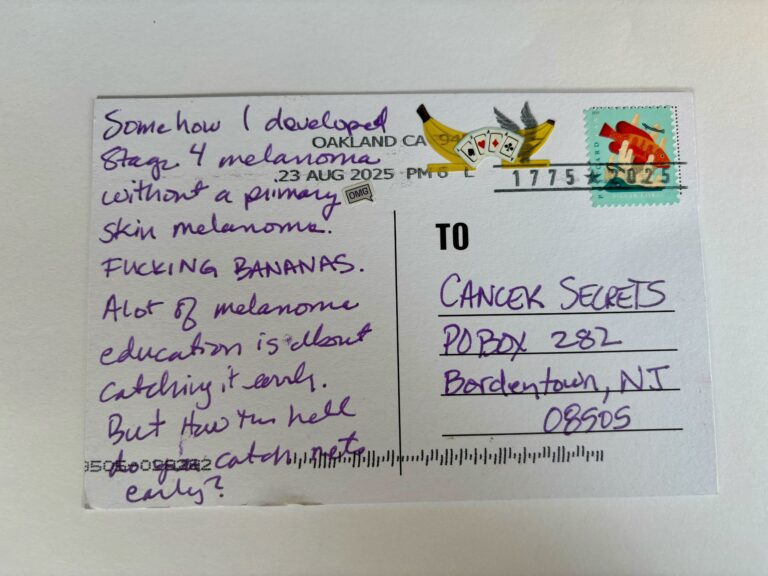 Somehow I developed
Stage 4 melanoma
without a primary
OMG
skin melanoma.
FUCKING BANANAS.
Alot of melanoma
education is about
catching it early.
But How the hell
do you catch mets
early?
OAKLAND CA 94
23 AUG 2025 PM 6 L
1775 ★ 2025
TO
CANCER SECRETS
PO BOX 282
Bordentown, NJ
08505